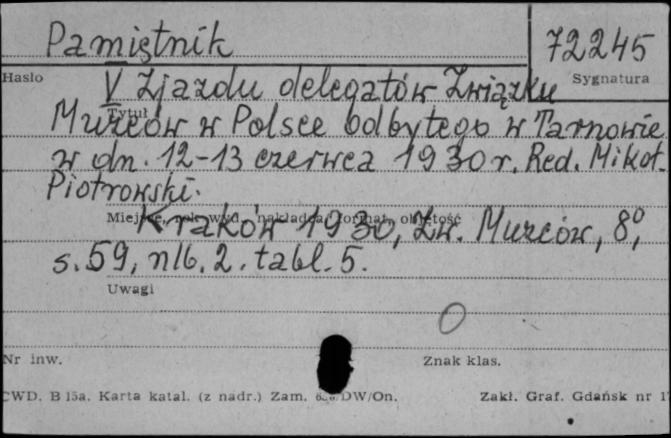 Pamiętnik
72245
Hasło
Sygnatura
V Zjazdu delegatów Związku
Tytuł
Muzeów w Polsce odbytego w Tarnowie
w dn. 12-13 czerwca 1930 r. Red. Mikoł.
Piotrowski.
Miejsce, rok wyd., nakładca, format, objętość
Kraków 1930, Zw. Muzeów, 8°,
s. 59, nlb. 2. tabl. 5.
Uwagi
Nr inw.
Znak klas.
CWD. B 15a. Karta katal. (z nadr.) Zam. /DW/On.
Zakł. Graf. Gdańsk nr 1